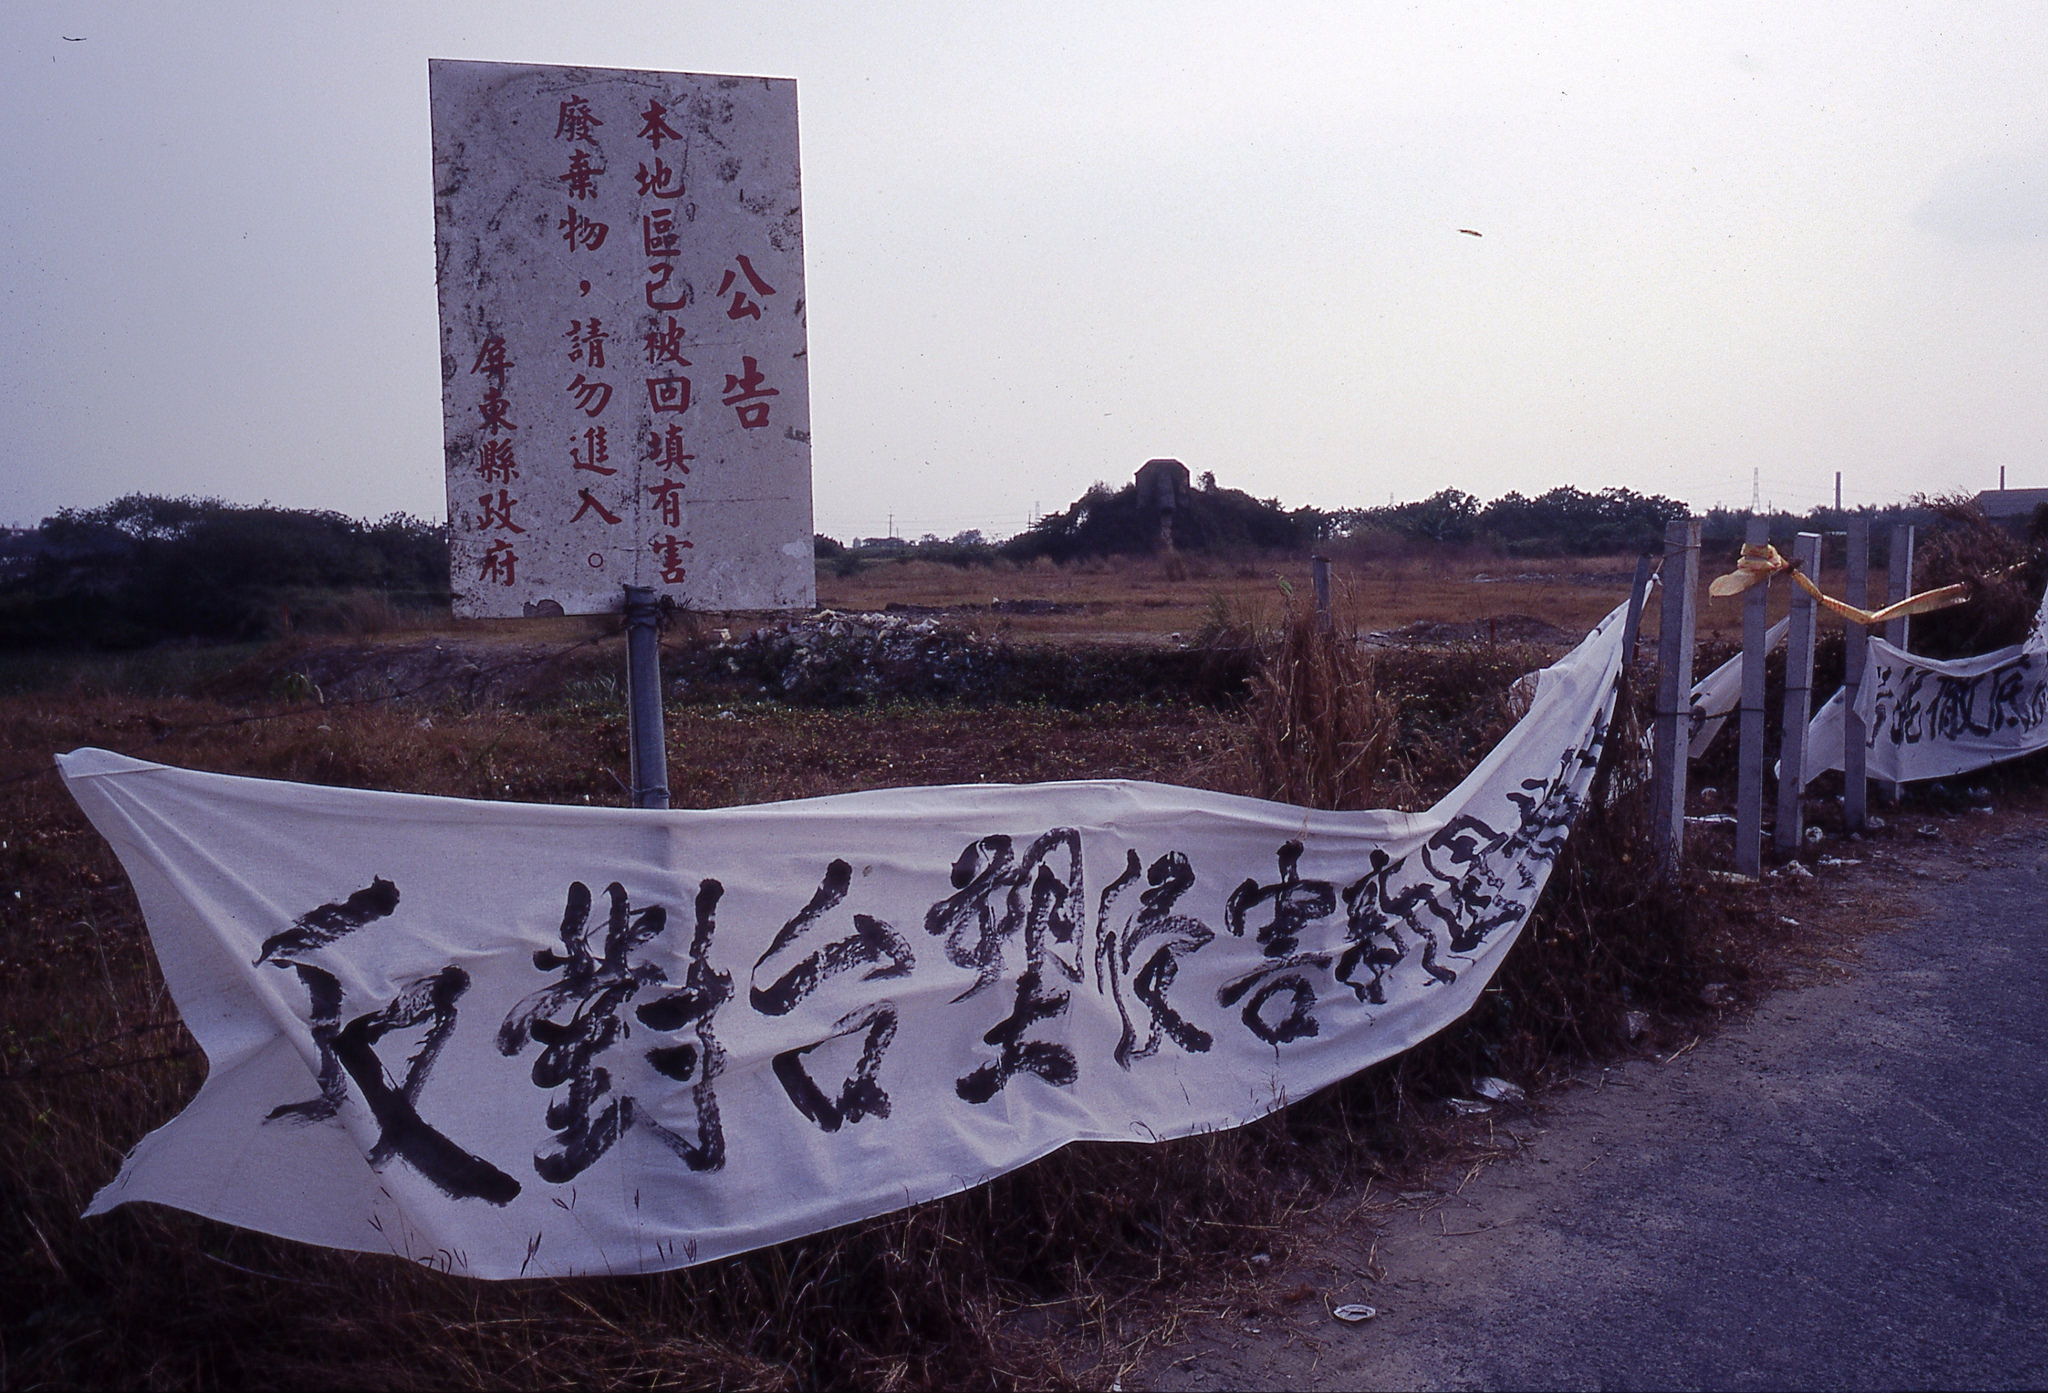 公告
本地區已被回填有害
廢棄物，請勿進入。
屏東縣政府
反對台塑侵害
徹底